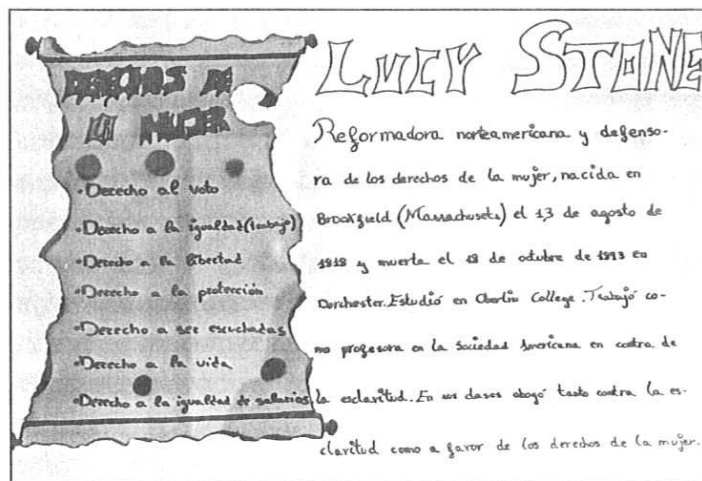 DERECHOS DE
LA MUJER
•Derecho al voto
•Derecho a la igualdad (trabajo)
•Derecho a la libertad
•Derecho a la protección
•Derecho a ser escuchadas
•Derecho a la vida
•Derecho a la igualdad de salarios
LUCY STONE
Reformadora norteamericana y defenso-
ra de los derechos de la mujer, nacida en
Brookfield (Massachusets) el 13 de agosto de
1818 y muerta el 18 de octubre de 1893 en
Dorchester. Estudió en Oberlin College. Trabajó co-
mo profesora en la Sociedad Americana en contra de
la esclavitud. En sus clases abogó tanto contra la es-
clavitud como a favor de los derechos de la mujer.